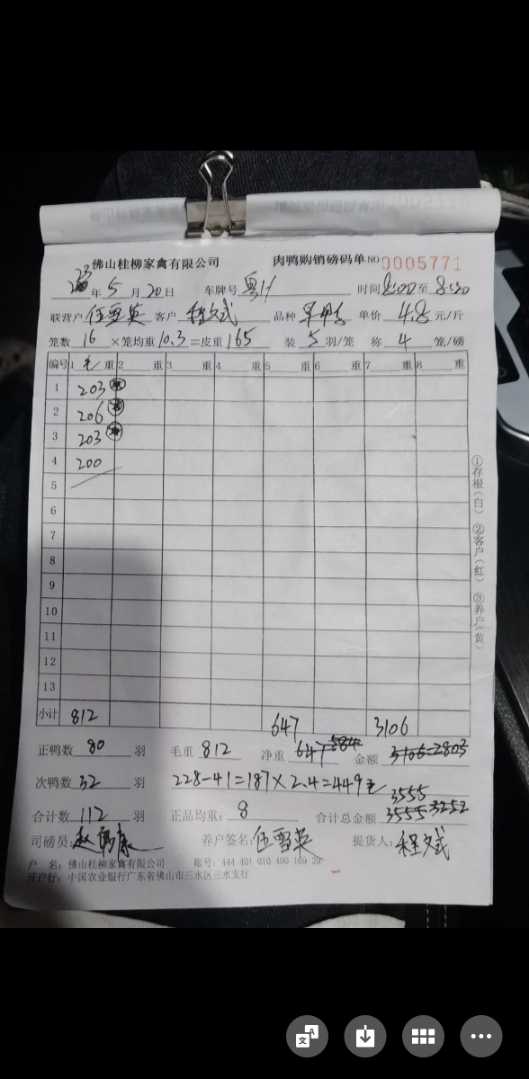 佛山桂柳家禽有限公司 肉鸭购销磅码单 NO 0005771
23年5月20日 车牌号 粤H 时间 8:00至8:30
联营户 伍雪英 客户 程文斌 品种 单价 4.8元/斤
笼数 16 ×笼均重 10.3 =皮重 165 装 5 羽/笼 称 4 笼/磅
编号 1 毛 重 2 重 3 重 4 重 5 重 6 重 7 重 8 重
1 203
2 206
3 203
4 200
5
6
7
8
9
10
11
12
13
小计 812 647 3106
正鸭数 80 羽 毛重 812 净重 647 584 金额 3106 2803
次鸭数 32 羽 228-41=187×2.4=449元
3555
合计数 112 羽 正品均重: 8 合计总金额 3555 3252
司磅员: 养户签名: 伍雪英 提货人: 程文斌
户 名: 佛山桂柳家禽有限公司 账号:
开户行: 中国农业银行广东省佛山市三水区三水支行
①存根(白) ②客户(红) ③养户(黄)